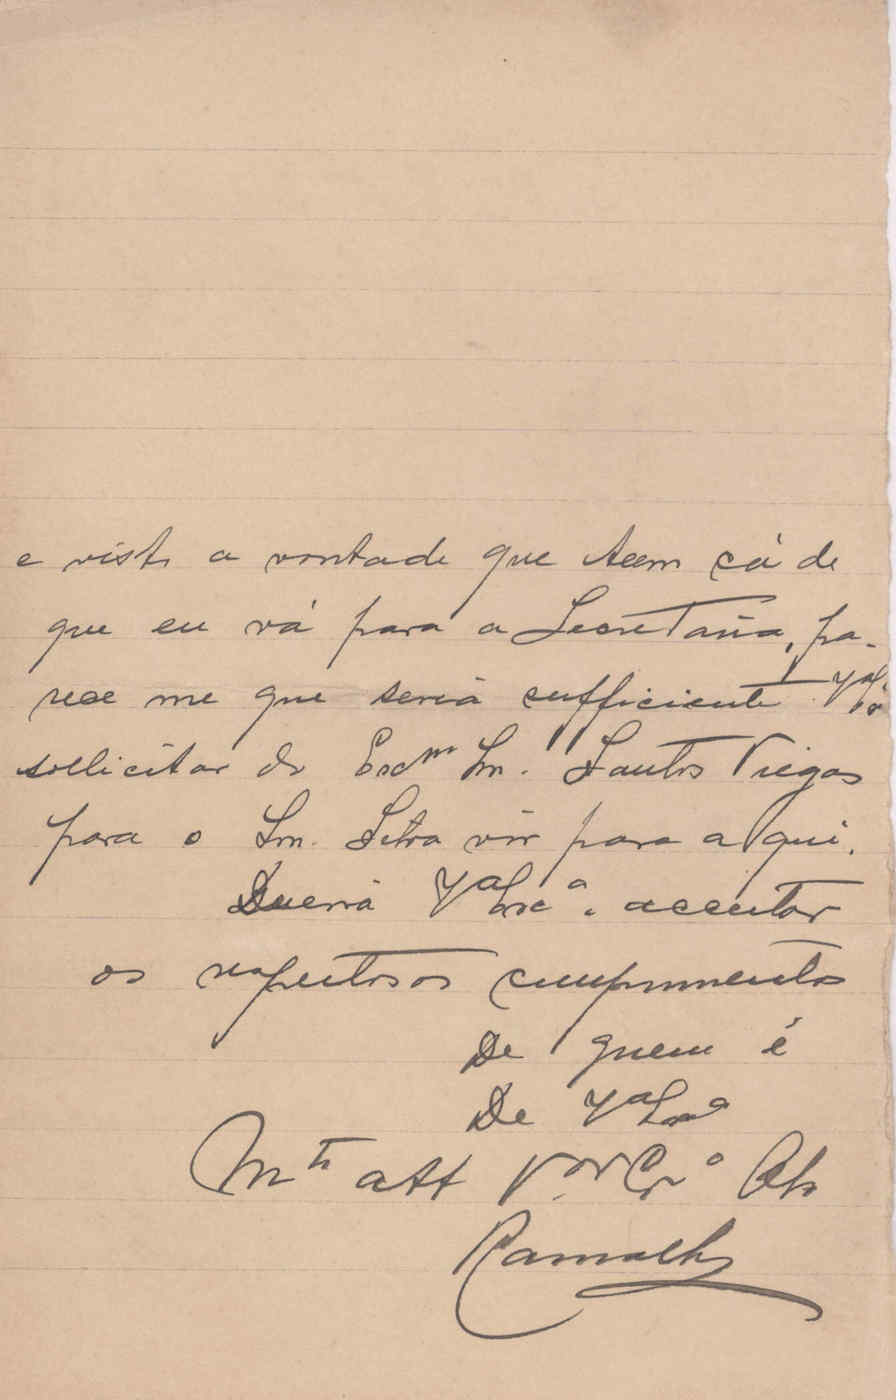 e visto a vontade que teem cá de
que eu vá para a Secretaria, pa-
rece me que seria sufficiente V.ª Ex.ª
sollicitar do Exmº Snr. Santos Viegas
para o Snr. Silva vir para aqui.
Querrá V.ª Exc.ª acceitar
os respeitosos cumprimentos
De quem é
De V.ª Ex.ª
Mtº att V.or Cr.º Obº
Ramalho